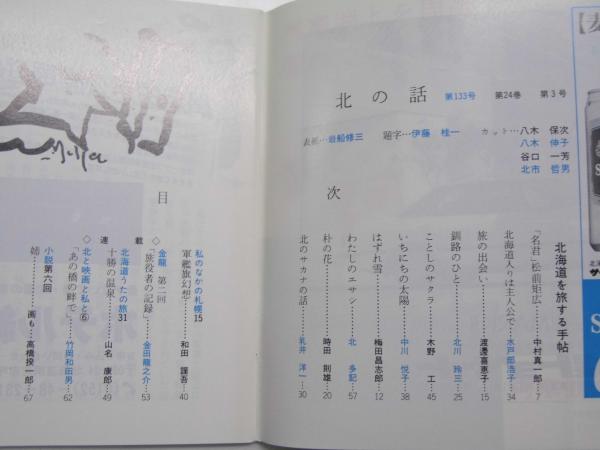 北の話 第133号 第24巻 第3号
表紙…岩船修三 題字…伊藤 桂一 カット…八木 保次
八木 伸子
谷口 一芳
北市 哲男
目 次
北海道を旅する手帖
「名君」松前矩広……中村真一郎 7
北海道人りは主人公で……水戸部浩子 34
旅の出会い……渡邊喜恵子 15
釧路のひと……北川 玲三 25
ことしのサクラ……木野 工 45
いちにちの太陽……中川 悦子 38
はずれ雪……梅田昌志郎 12
わたしのエサシ……北 多記 57
朴の花……時田 則雄 20
北のサカナの話……乳井 洋一 30
私のなかの札幌15
軍艦旗幻想……和田 謹吾 40
◇連載◇
金龍 第二回
「旅役者の記録」……金田龍之介 53
北海道うたの旅31
十勝の温泉……山名 康郎 49
北と映画と私と⑥
「あの橋の畔で」……竹岡和田男 62
小説第六回
姉……画も…高橋揆一郎 67